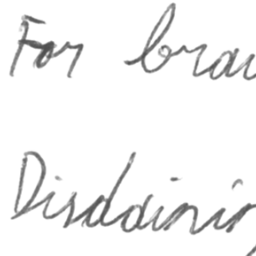 For brav
Disdainin